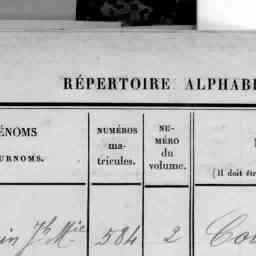 RÉPERTOIRE ALPHABÉ
ÉNOMS
URNOMS.
NUMÉROS
ma-
tricules.
NU-
MÉRO
du
volume.
(Il doit êtr
in Jh Mie 584 2 Cou